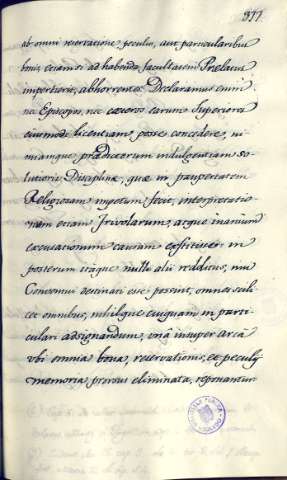 377.
ab omni reservatione peculii, aut particularibus
bonis, etiamsi ad habenda, facultatem Prelatus
impertierit, abhorrentes. Declaramus enim
nec Episcopos, nec cæteros earum Superiores
eiusmodi licentiam posse concedere, ni
miamque prædictorum indulgentiam so
lutioris Disciplinæ, quæ in paupertatem
Religiosam ingetum fecit, interpretatio
nem etiam frivolarum, atque inanium
excusationum causam extitisse: in
posterum itaque nulli alii redditus, nisi
Conventui destinari esse possint, omnes scili
cet omnibus, nihilque cuiquam in parti
culari adsignandum, unâ insuper arcâ
ubi omnia bona, reservationis, et peculij
memoria prorsus eliminata, reponantur